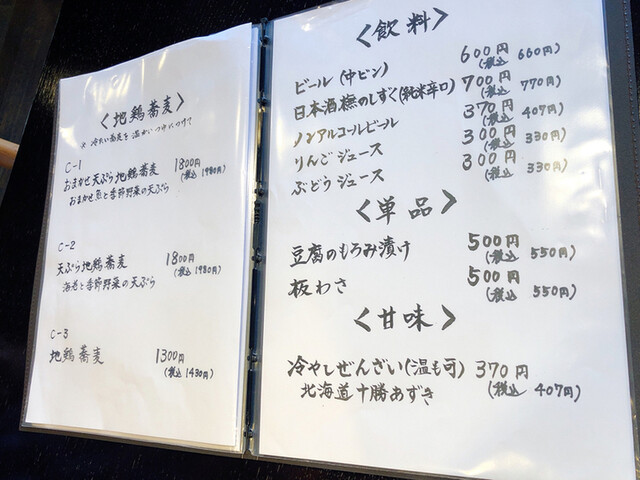 ＜地鶏蕎麦＞
※冷たい蕎麦を温かいつゆにつけて
C-1
おまかせ天ぷら地鶏蕎麦 1800円
(税込 1980円)
おまかせ魚と季節野菜の天ぷら
C-2
天ぷら地鶏蕎麦 1800円
(税込 1980円)
海老と季節野菜の天ぷら
C-3
地鶏蕎麦 1300円
(税込 1430円)
＜飲料＞
ビール(中ビン) 600円(税込 660円)
日本酒 樵のしずく(純米辛口) 700円(税込 770円)
ノンアルコールビール 370円(税込 407円)
りんごジュース 300円(税込 330円)
ぶどうジュース 300円(税込 330円)
＜単品＞
豆腐のもろみ漬け 500円(税込 550円)
板わさ 500円(税込 550円)
＜甘味＞
冷やしぜんざい(温も可) 370円
北海道十勝あずき (税込 407円)